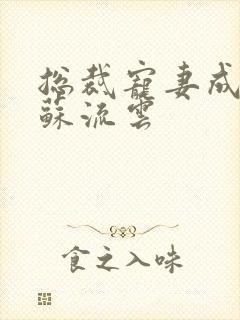 总裁宠妻成
蘇流雲
食之入味